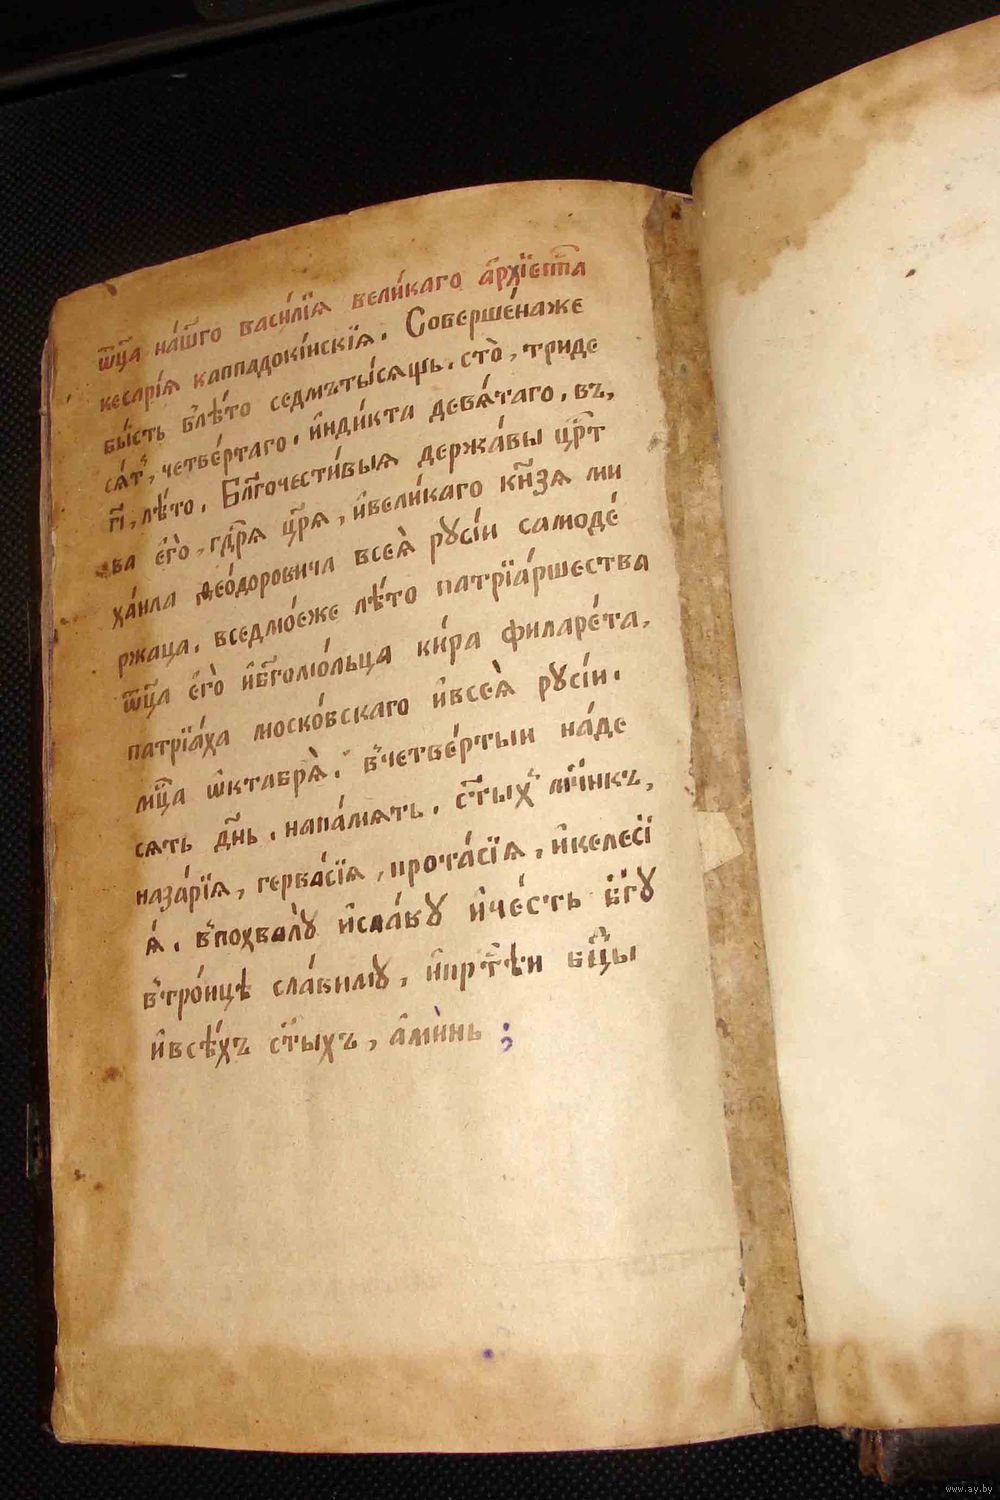 ѿц҃а на́шго васи́лїѧ вели́каго а҆рхїепⷭ҇па
кесарі́ѧ каппадокі́нскїѧ. Соверше́наже
бы́сть в̾лѣ́то седмъты́сѧщь. сто̀, триде
сѧ́тъ, четве́ртаго. и҆нди́кта девѧ́таго. въ,
гі҃, лѣ́то. Блг҃очести́выѧ держа́вы црⷭ҇т
ва є҆го̀, гдⷭ҇рѧ цр҃ѧ, и҆вели́каго кн҃зѧ ми
ха́ила ѳео́доровича всеѧ̀ рꙋсі́и самоде́
ржаца. вседмо́еже лѣ́то патрїа́ршества
ѿц҃а є҆го̀ и҆бг҃омо́льца ки́ра филаре́та.
патрїа́ха моско́вскаго и҆всеѧ̀ рꙋсі́и.
мцⷭ҇а ѡ҆ктабрѧ̀. в̾четве́ртыи на́де
сѧть дн҃ь. напа́мѧть. ст҃ыхъ мчн҃къ,
наза́рїѧ, герва́сїѧ, прота́сїѧ, и҆келесі
ѧ́. в̾похвалꙋ̀ и҆сла́вꙋ и҆че́сть в҃гꙋ
в̾тро́ицѣ сла́вимꙋ, и҆прⷭ҇тѣи бцⷣы
и҆всѣ́хъ ст҃ыхъ, а҆ми́нь ;
www.ay.by